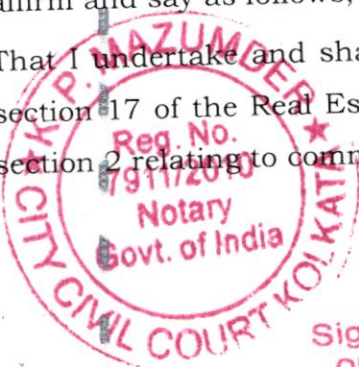 affirm and say as follows,
That I undertake and sha
section 17 of the Real Es
section 2 relating to comm
K. P. MAZUMDER
Reg. No.
7911/2010
Notary
Govt. of India
CITY CIVIL COURT KOLKATA
Sig